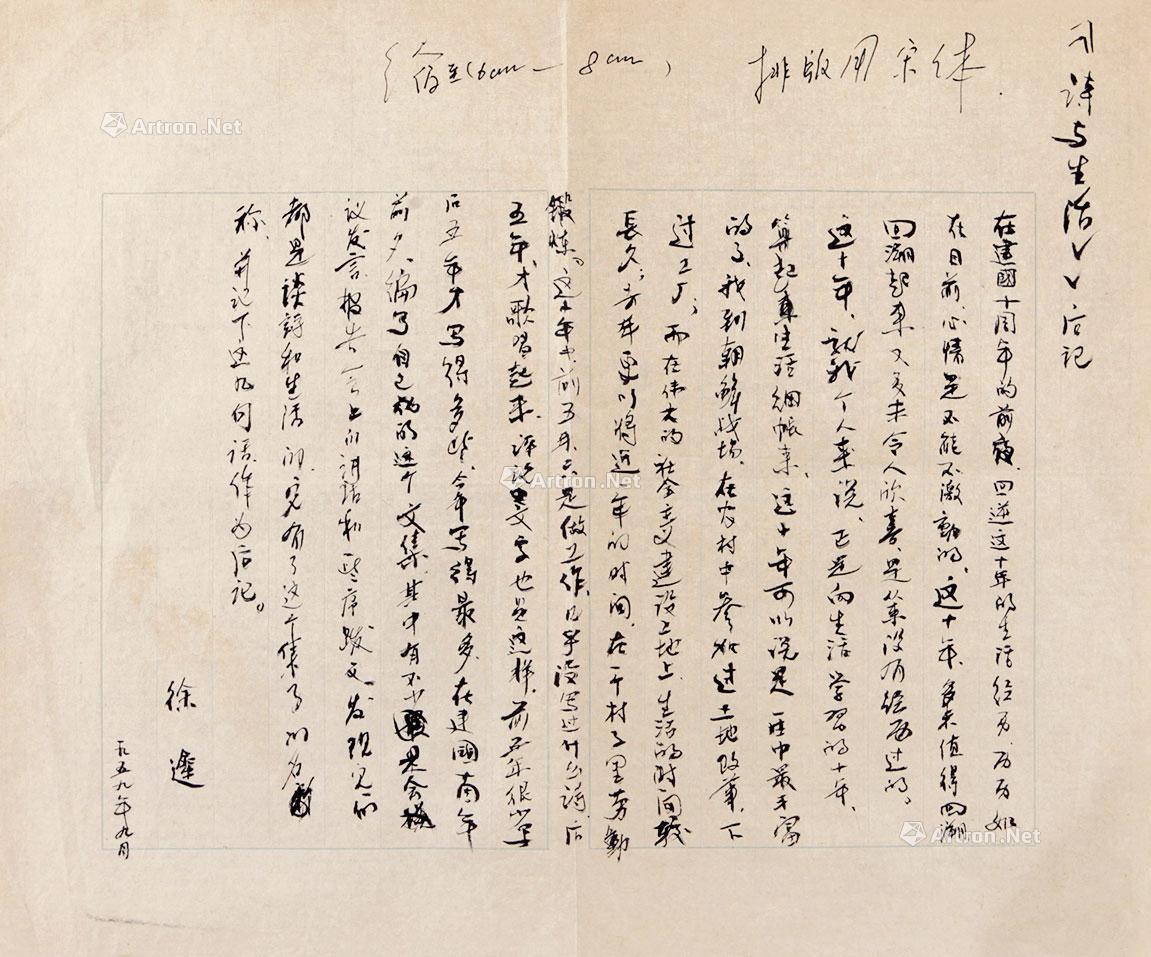 《诗与生活》后记
缩至(6cm—8cm)
排版用宋体.
在建國十周年的前夜、回逆这十年的生活经历、历历如
在目前、心情是不能不激動的。这十年、多未值得回溯
回溯起来又多未令人欣喜、是从没有经历过的。
这十年、就我个人来说、正是向生活学習的十年、
算起来生活細帳来、这十年可以说是一生中最丰富
的了、我到朝鮮战场、在农村中参加过土地改革、下
过工厂；而在伟大的社会主义建设工地上生活的时间較
長久；去年更以将近一年的时间、在一个村子里劳動
鍛炼。这十年中、前五年只是做工作、几乎没写过什么诗、后
五年、才歌唱起来。评论文字也是这样、前五年很少写
后五年才写得多些、今年写得最多、在建國十周年
前夕、编写自己的这个文集、其中有不少是会
议发言、报告会上的讲话和一些序跋文、发現它们
都是談詩和生活的、完有了这个集子的名
称、并记下这几句话、作为后记。
徐遲
一九五九年九月
Artron.Net
Artron.Net
Artron.Net
Artron.Net
Artron.Net